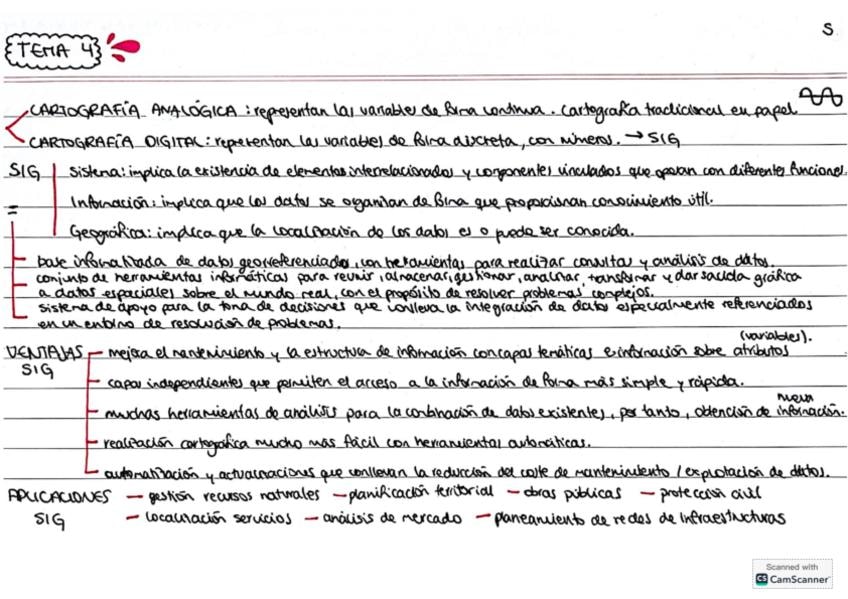 S
TEMA 4
CARTOGRAFÍA ANALÓGICA: representan las variables de forma continua. Cartografía tradicional en papel
CARTOGRAFÍA DIGITAL: representan las variables de forma discreta, con números. → SIG
SIG Sistema: implica la existencia de elementos interrelacionados y componentes vinculados que operan con diferentes funciones.
Información: implica que los datos se organizan de forma que proporcionan conocimiento útil.
=
Geográfica: implica que la localización de los datos es o puede ser conocida.
base informatizada de datos georreferenciados, con herramientas para realizar consultas y análisis de datos.
conjunto de herramientas informáticas para reunir, almacenar, gestionar, analizar, transformar y dar salida gráfica
a datos espaciales sobre el mundo real, con el propósito de resolver problemas complejos.
sistema de apoyo para la toma de decisiones que conlleva la integración de datos especialmente referenciados
en un entorno de resolución de problemas.
(variables).
VENTAJAS mejora el mantenimiento y la estructura de información con capas temáticas e información sobre atributos
SIG
capas independientes que permiten el acceso a la información de forma más simple y rápida.
nueva
muchas herramientas de análisis para la combinación de datos existentes, por tanto, obtención de información.
realización cartográfica mucho más fácil con herramientas automáticas.
automatización y actualizaciones que conllevan la reducción del coste de mantenimiento / explotación de datos.
APLICACIONES — gestión recursos naturales — planificación territorial — obras públicas — protección civil
SIG — localización servicios — análisis de mercado — planeamiento de redes de infraestructuras
Scanned with
CS CamScanner